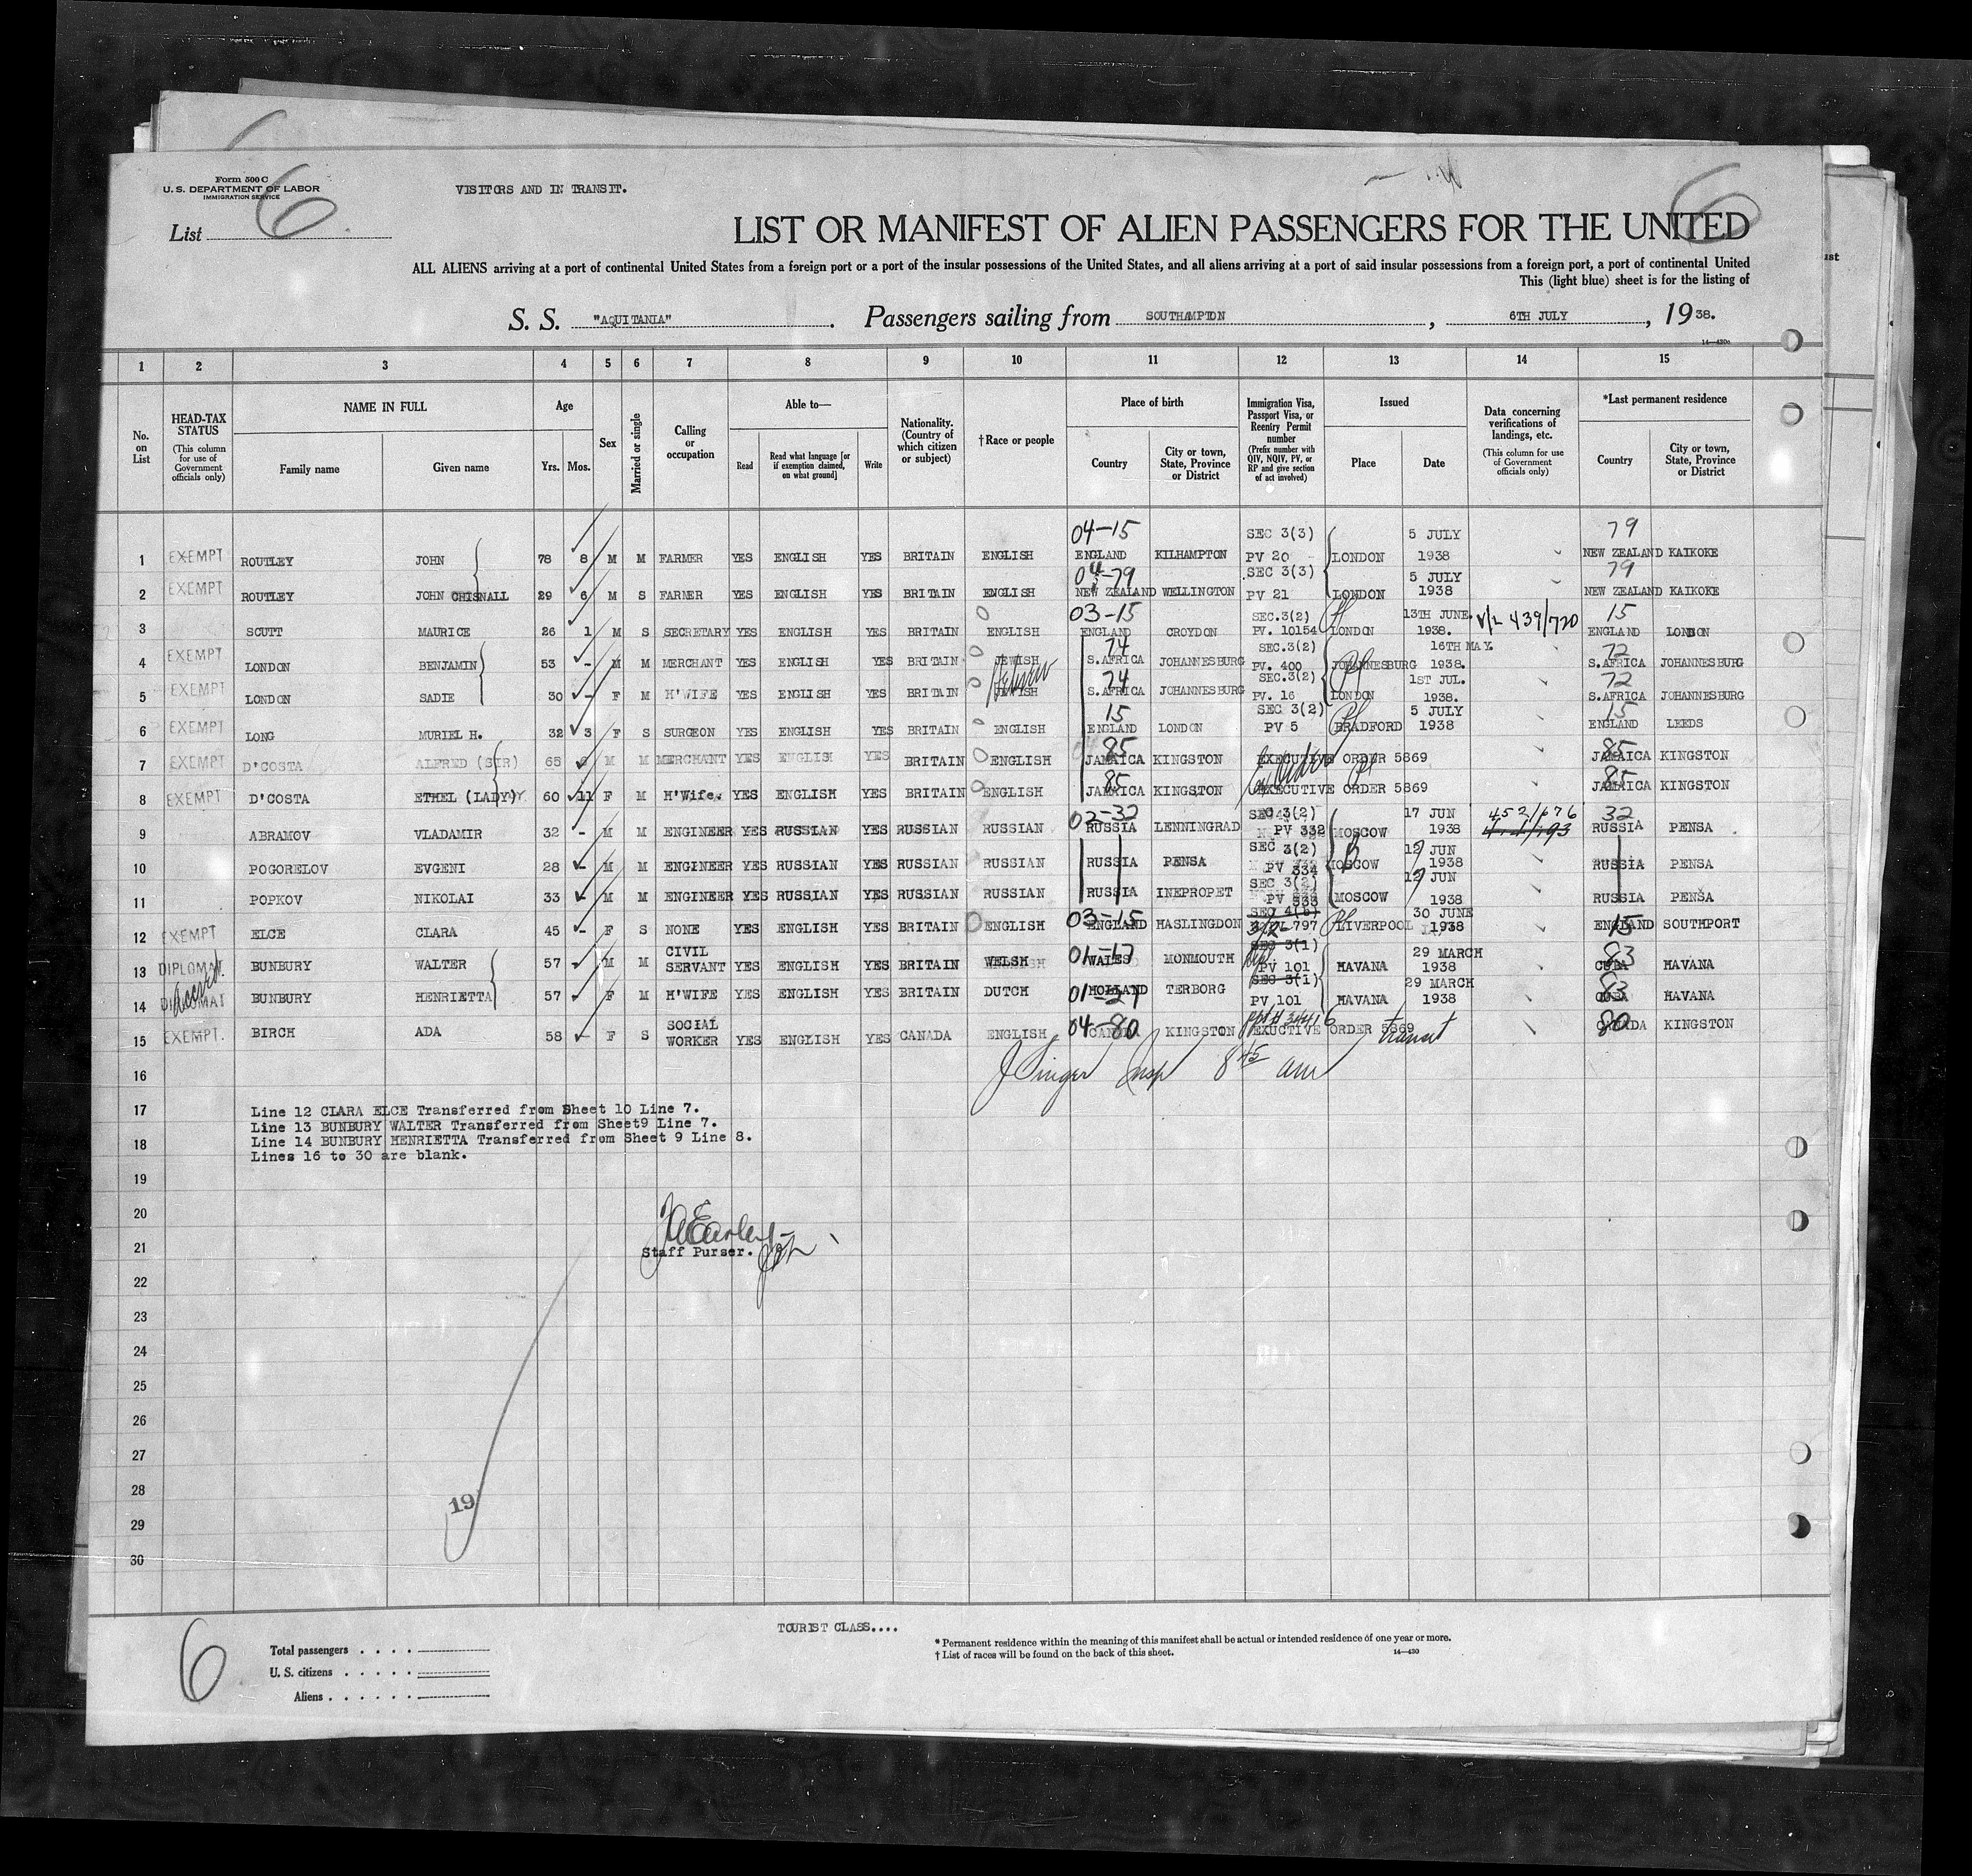 Form 500 C
U. S. DEPARTMENT OF LABOR
IMMIGRATION SERVICE
VISITORS AND IN TRANSIT.
List 6
6
LIST OR MANIFEST OF ALIEN PASSENGERS FOR THE UNITED
ALL ALIENS arriving at a port of continental United States from a foreign port or a port of the insular possessions of the United States, and all aliens arriving at a port of said insular possessions from a foreign port, a port of continental United
This (light blue) sheet is for the listing of
S. S. "AQUITANIA". Passengers sailing from SOUTHAMPTON, 6TH JULY, 1938.
14—430c
1 2 3 4 5 6 7 8 9 10 11 12 13 14 15
No. on List
HEAD-TAX STATUS (This column for use of Government officials only)
NAME IN FULL Family name Given name
Age Yrs. Mos.
Sex
Married or single
Calling or occupation
Able to— Read Read what language [or if exemption claimed, on what ground] Write
Nationality. (Country of which citizen or subject)
†Race or people
Place of birth Country City or town, State, Province or District
Immigration Visa, Passport Visa, or Reentry Permit number (Prefix number with QIV, NQIV, PV, or RP and give section of act involved)
Issued Place Date
Data concerning verifications of landings, etc. (This column for use of Government officials only)
*Last permanent residence Country City or town, State, Province or District
04-15 SEC 3(3) 5 JULY 79
1 EXEMPT ROUTLEY JOHN 78 8 M M FARMER YES ENGLISH YES BRITAIN ENGLISH ENGLAND KILHAMPTON PV 20 LONDON 1938 NEW ZEALAND KAIKOKE
04-79 SEC 3(3) 5 JULY 79
2 EXEMPT ROUTLEY JOHN CHISNALL 29 6 M S FARMER YES ENGLISH YES BRITAIN ENGLISH NEW ZEALAND WELLINGTON PV 21 LONDON 1938 NEW ZEALAND KAIKOKE
03-15 SEC.3(2) 13TH JUNE. V/L 439/720 15
3 SCUTT MAURICE 26 1 M S SECRETARY YES ENGLISH YES BRITAIN ENGLISH ENGLAND CROYDON PV. 10154 LONDON 1938. ENGLAND LONDON
74 SEC.3(2) 16TH MAY. 72
4 EXEMPT LONDON BENJAMIN 53 - M M MERCHANT YES ENGLISH YES BRITAIN JEWISH S.AFRICA JOHANNESBURG PV. 400 JOHANNESBURG 1938. S.AFRICA JOHANNESBURG
Hebrew 74 SEC.3(2) 1ST JUL. 72
5 EXEMPT LONDON SADIE 30 - F M H'WIFE YES ENGLISH YES BRITAIN JEWISH S.AFRICA JOHANNESBURG PV. 16 LONDON 1938. S.AFRICA JOHANNESBURG
15 SEC 3(2) 5 JULY 15
6 EXEMPT LONG MURIEL H. 32 3 F S SURGEON YES ENGLISH YES BRITAIN ENGLISH ENGLAND LONDON PV 5 BRADFORD 1938 ENGLAND LEEDS
85 85
7 EXEMPT D'COSTA ALFRED (SIR) 65 M M MERCHANT YES ENGLISH YES BRITAIN ENGLISH JAMAICA KINGSTON EXECUTIVE ORDER 5869 JAMAICA KINGSTON
85 Ex Order 85
8 EXEMPT D'COSTA ETHEL (LADY) 60 11 F M H'Wife. YES ENGLISH YES BRITAIN ENGLISH JAMAICA KINGSTON EXECUTIVE ORDER 5869 JAMAICA KINGSTON
02-32 SEC 3(2) 17 JUN 452/676 32
9 ABRAMOV VLADAMIR 32 - M M ENGINEER YES RUSSIAN YES RUSSIAN RUSSIAN RUSSIA LENNINGRAD PV 332 MOSCOW 1938 RUSSIA PENSA
SEC 3(2) 12 JUN
10 POGORELOV EVGENI 28 - M M ENGINEER YES RUSSIAN YES RUSSIAN RUSSIAN RUSSIA PENSA PV 334 MOSCOW 1938 RUSSIA PENSA
SEC 3(2) 12 JUN
11 POPKOV NIKOLAI 33 - M M ENGINEER YES RUSSIAN YES RUSSIAN RUSSIAN RUSSIA INEPROPET PV 333 MOSCOW 1938 RUSSIA PENSA
03-15 SEC 4(b) 30 JUNE 15
12 EXEMPT ELCE CLARA 45 - F S NONE YES ENGLISH YES BRITAIN ENGLISH ENGLAND HASLINGDON 3/2 797 LIVERPOOL 1938 ENGLAND SOUTHPORT
01-17 SEC 3(1) 29 MARCH 83
13 DIPLOMAT BUNBURY WALTER 57 - M M CIVIL SERVANT YES ENGLISH YES BRITAIN WELSH WALES MONMOUTH PV 101 HAVANA 1938 CUBA HAVANA
Accred. 01-27 SEC 3(1) 29 MARCH 83
14 DIPLOMAT BUNBURY HENRIETTA 57 F M H'WIFE YES ENGLISH YES BRITAIN DUTCH HOLLAND TERBORG PV 101 HAVANA 1938 CUBA HAVANA
04-80 80
15 EXEMPT. BIRCH ADA 58 - F S SOCIAL WORKER YES ENGLISH YES CANADA ENGLISH CANADA KINGSTON EXUCTIVE ORDER 5869 transit CANADA KINGSTON
16 J Singer Insp 8 45 am
17 Line 12 CLARA ELCE Transferred from Sheet 10 Line 7.
Line 13 BUNBURY WALTER Transferred from Sheet9 Line 7.
18 Line 14 BUNBURY HENRIETTA Transferred from Sheet 9 Line 8.
Lines 16 to 30 are blank.
19
20
21 Staff Purser.
22
23
24
25
26
27
28
19
29
30
6
TOURIST CLASS....
Total passengers
U. S. citizens
Aliens
* Permanent residence within the meaning of this manifest shall be actual or intended residence of one year or more.
† List of races will be found on the back of this sheet.
14—430